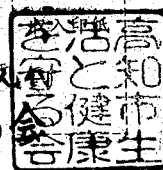 高知市生
活と健康
を守る会
会